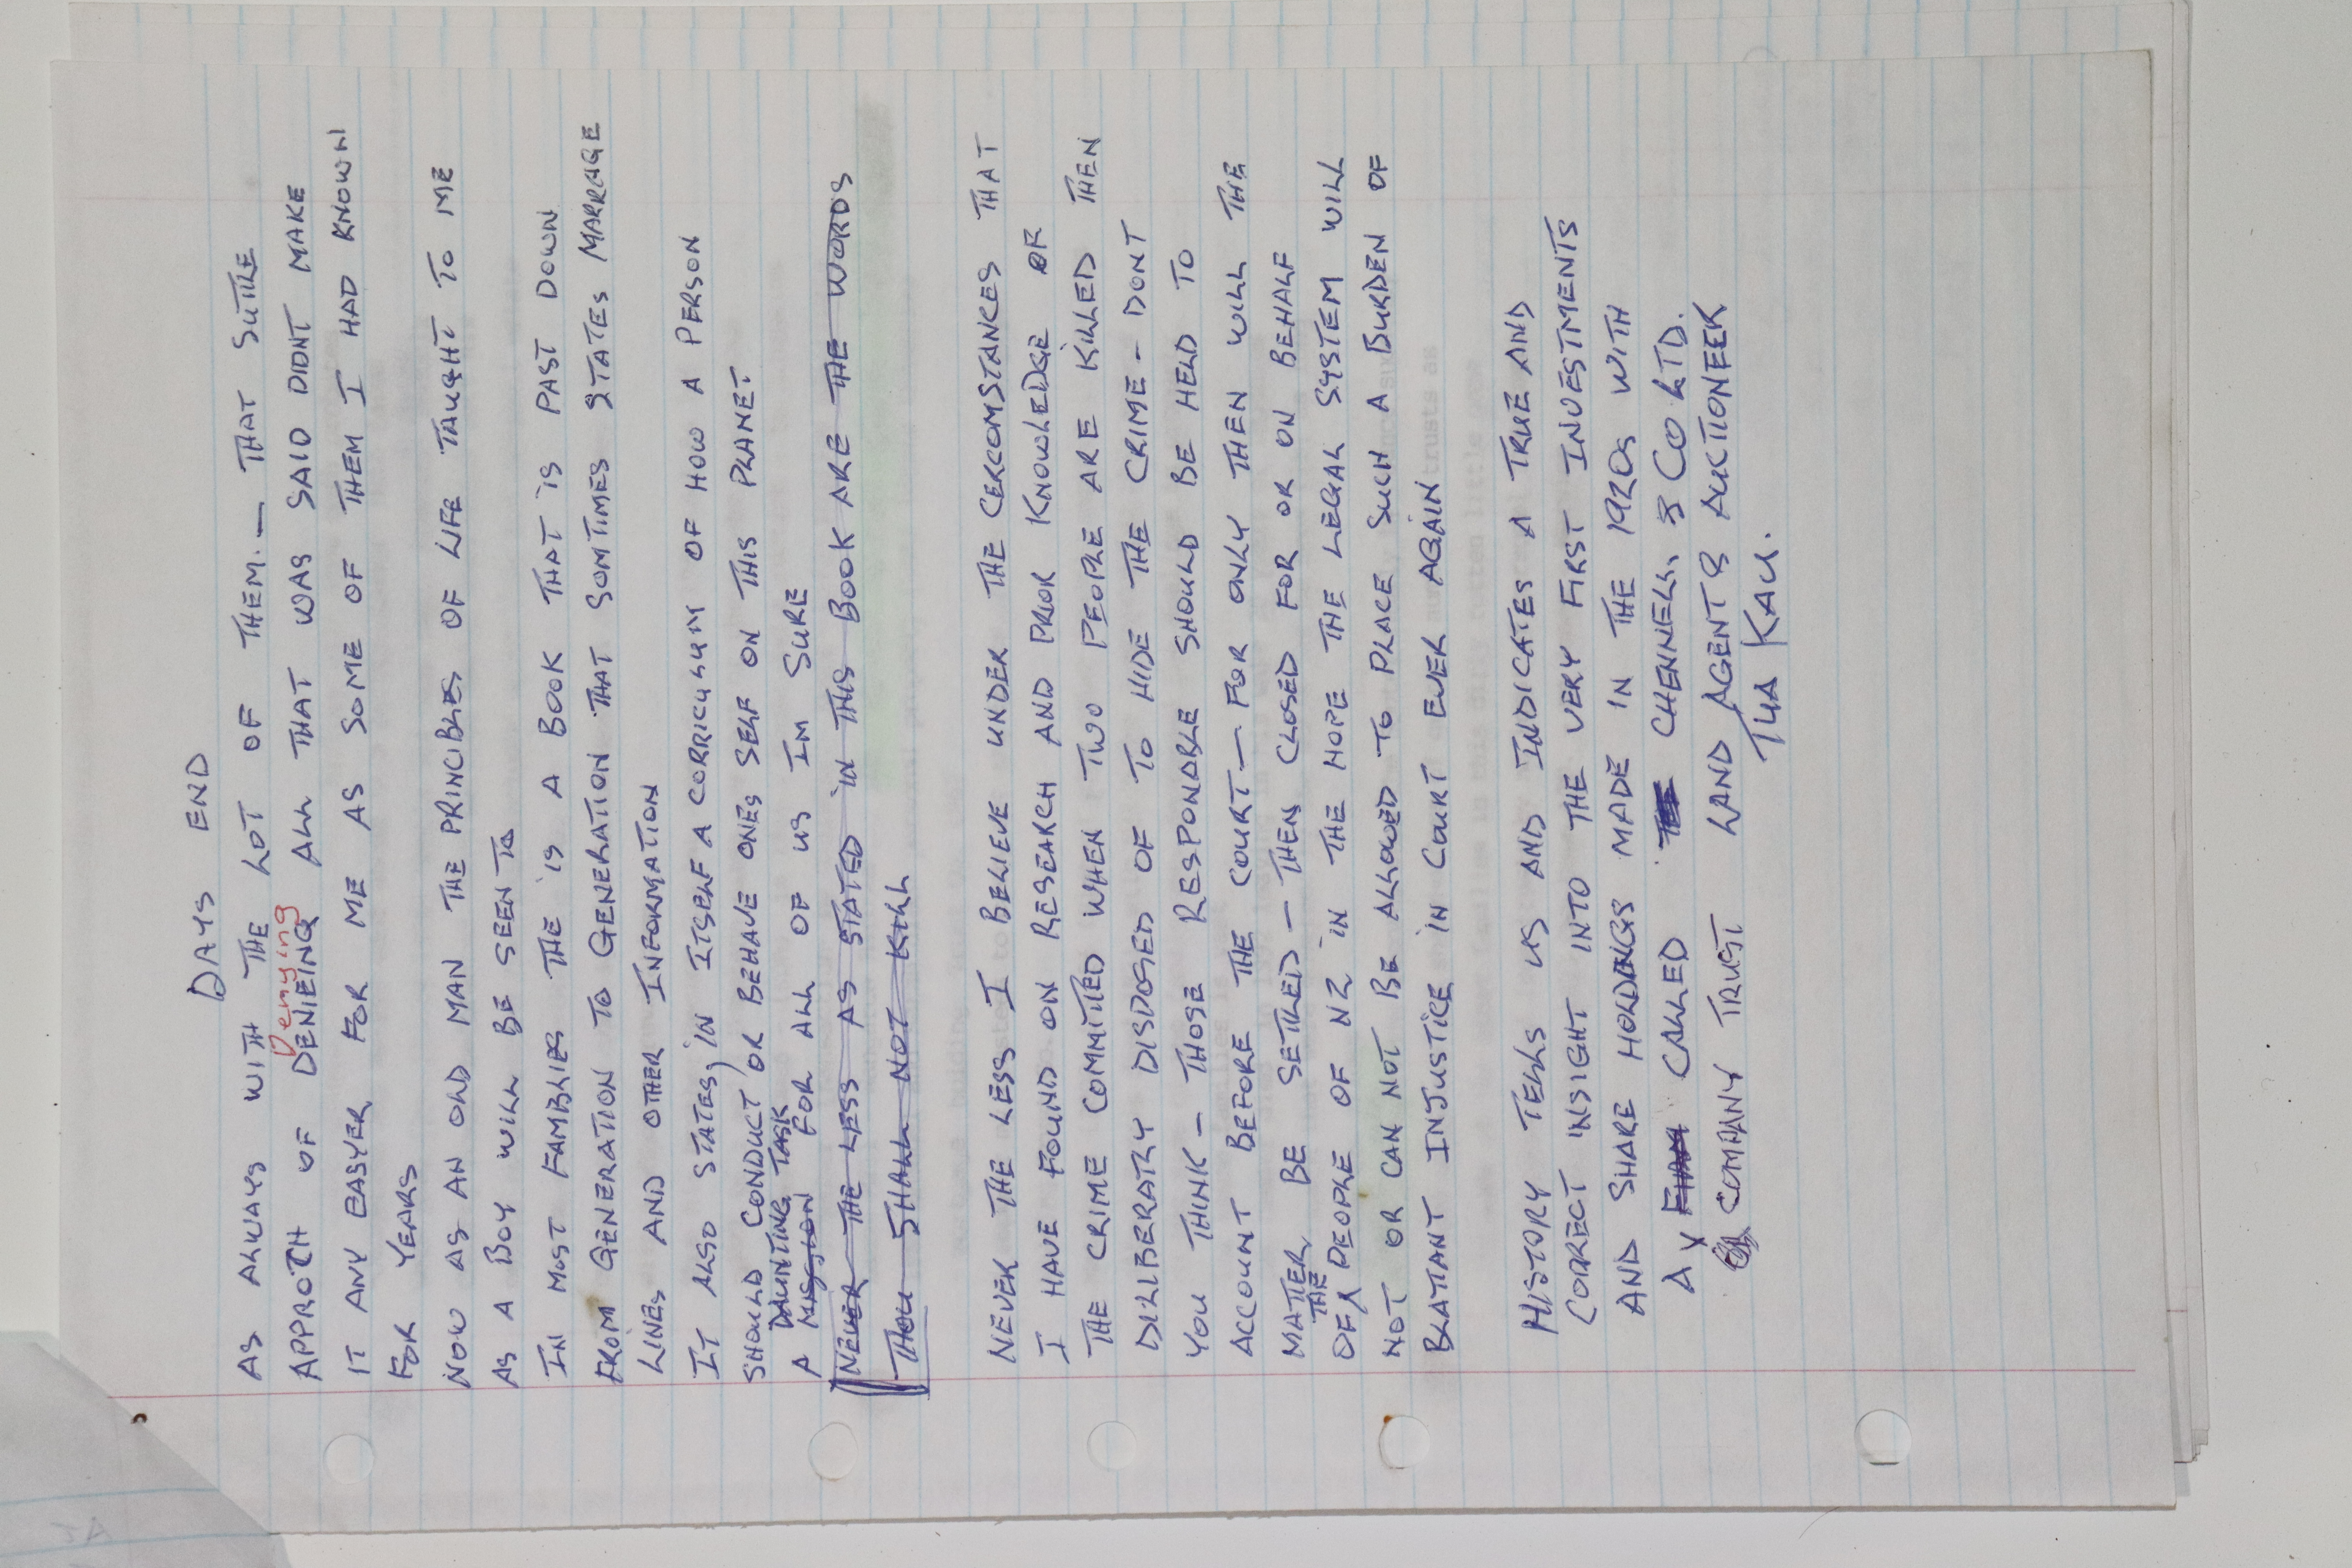 DAYS END
AS ALWAYS WITH THE LOT OF THEM. — THAT SUTTLE
Denying
APPROTCH OF DENIEING ALL THAT WAS SAID DIDNT MAKE
IT ANY EASYER FOR ME AS SOME OF THEM I HAD KNOWN
FOR YEARS
NOW AS AN OLD MAN THE PRINCIBLES OF LIFE TAUGHT TO ME
AS A BOY WILL BE SEEN TO
IN MOST FAMBLIES THE IS A BOOK THAT IS PAST DOWN
FROM GENERATION TO GENERATION THAT SOMTIMES STATES MARRAGE
LINES AND OTHER INFORMATION
IT ALSO STATES, IN ITSELF A CORRICULUM OF HOW A PERSON
SHOULD CONDUCT OR BEHAVE ONES SELF ON THIS PLANET
DAUNTING TASK
A MISSION FOR ALL OF US IM SURE
NEVER THE LESS AS STATED IN THIS BOOK ARE THE WORDS
THOU SHALL NOT KILL
NEVER THE LESS I BELIEVE UNDER THE CERCOMSTANCES THAT
I HAVE FOUND ON RESEARCH AND PRIOR KNOWLEDGE OF
THE CRIME COMMITED WHEN TWO PEOPLE ARE KILLED THEN
DILLBERATLY DISPOSED OF TO HIDE THE CRIME - DONT
YOU THINK - THOSE RESPONDBLE SHOULD BE HELD TO
ACCOUNT BEFORE THE COURT — FOR ONLY THEN WILL THE
MATTER BE SETTLED — THEN CLOSED FOR OR ON BEHALF
THE
OF PEOPLE OF NZ IN THE HOPE THE LEGAL SYSTEM WILL
NOT OR CAN NOT BE ALLOWED TO PLACE SUCH A BURDEN OF
BLATANT INJUSTICE IN COURT EVER AGAIN
HISTORY TELLS US AND INDICATES A TRUE AND
CORRECT INSIGHT INTO THE VERY FIRST INVESTMENTS
AND SHARE HOLDINGS MADE IN THE 1920s WITH
A CALLED CHENNELLS & CO LTD.
COMPANY TRUST LAND AGENTS & AUCTIONEER
TUA KAU.